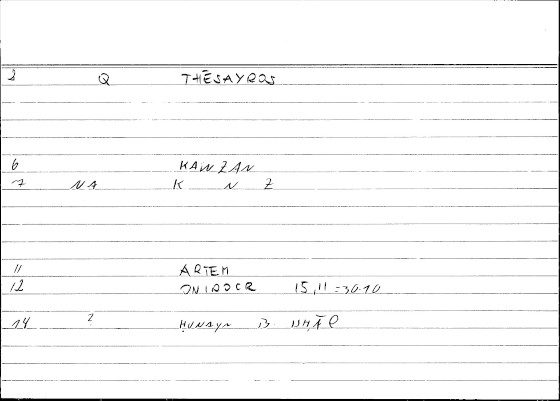 3 Q THĒSAYROS
6 KANZAN
7 NA K N Z
11 ARTEM
12 ONIROCR 15,11=30.10
14 2 ḤUNAYN B